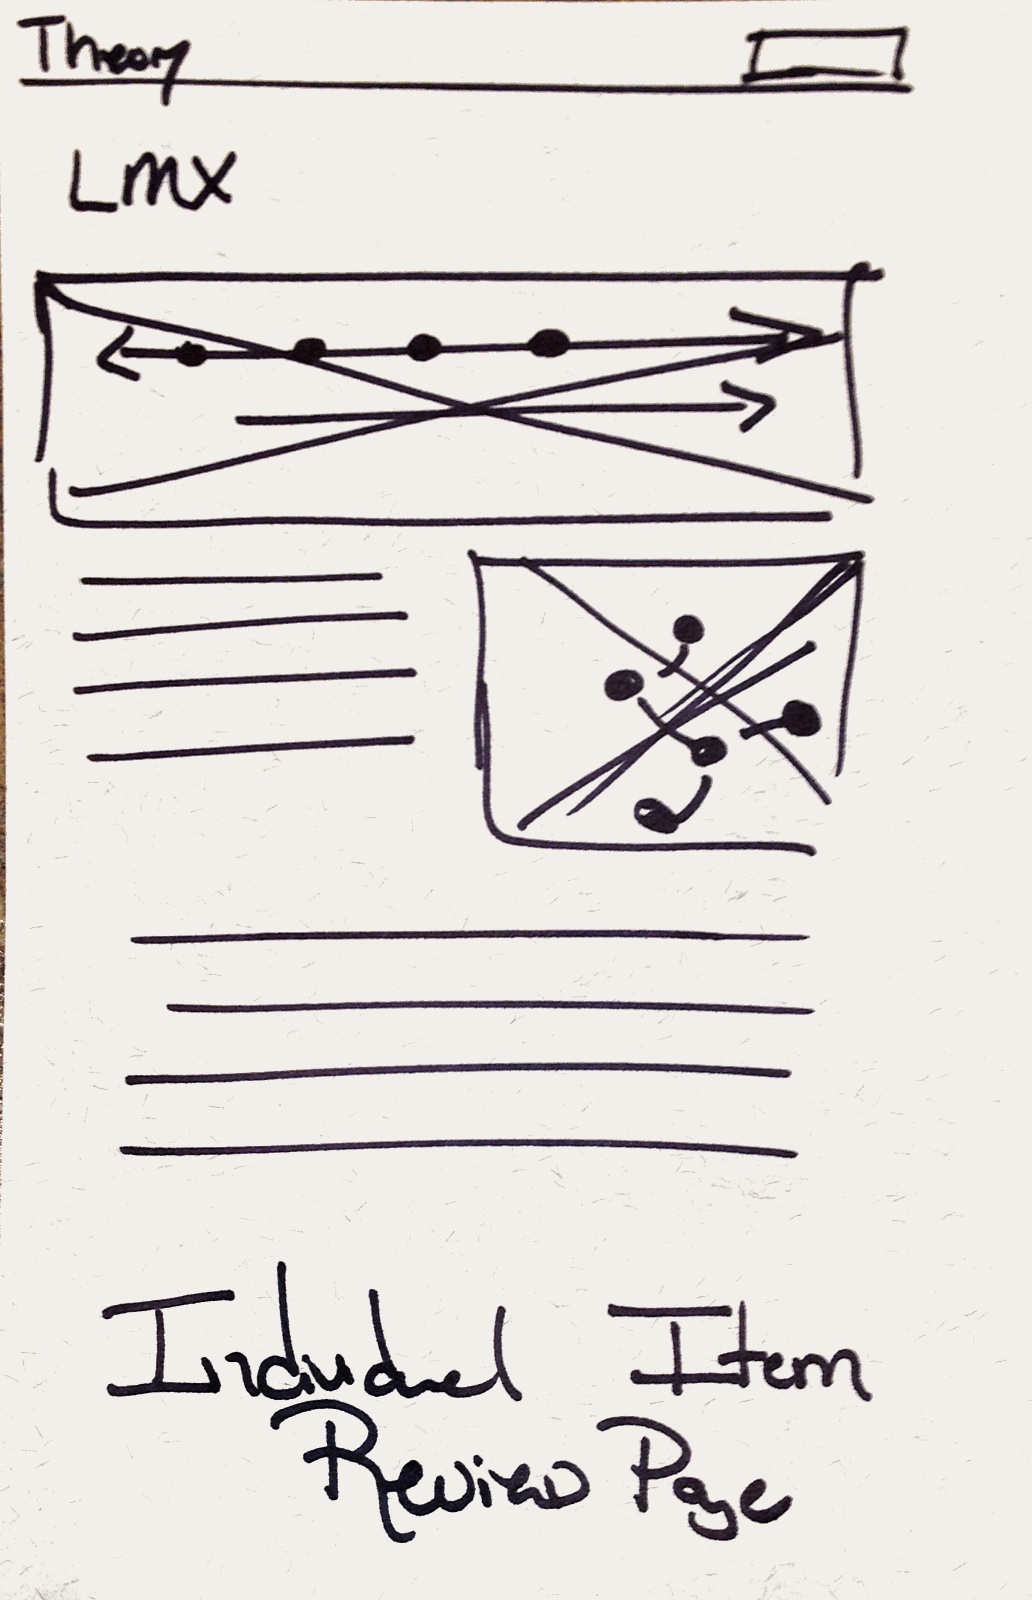 Theory
LMX
Individual Item
Review Page